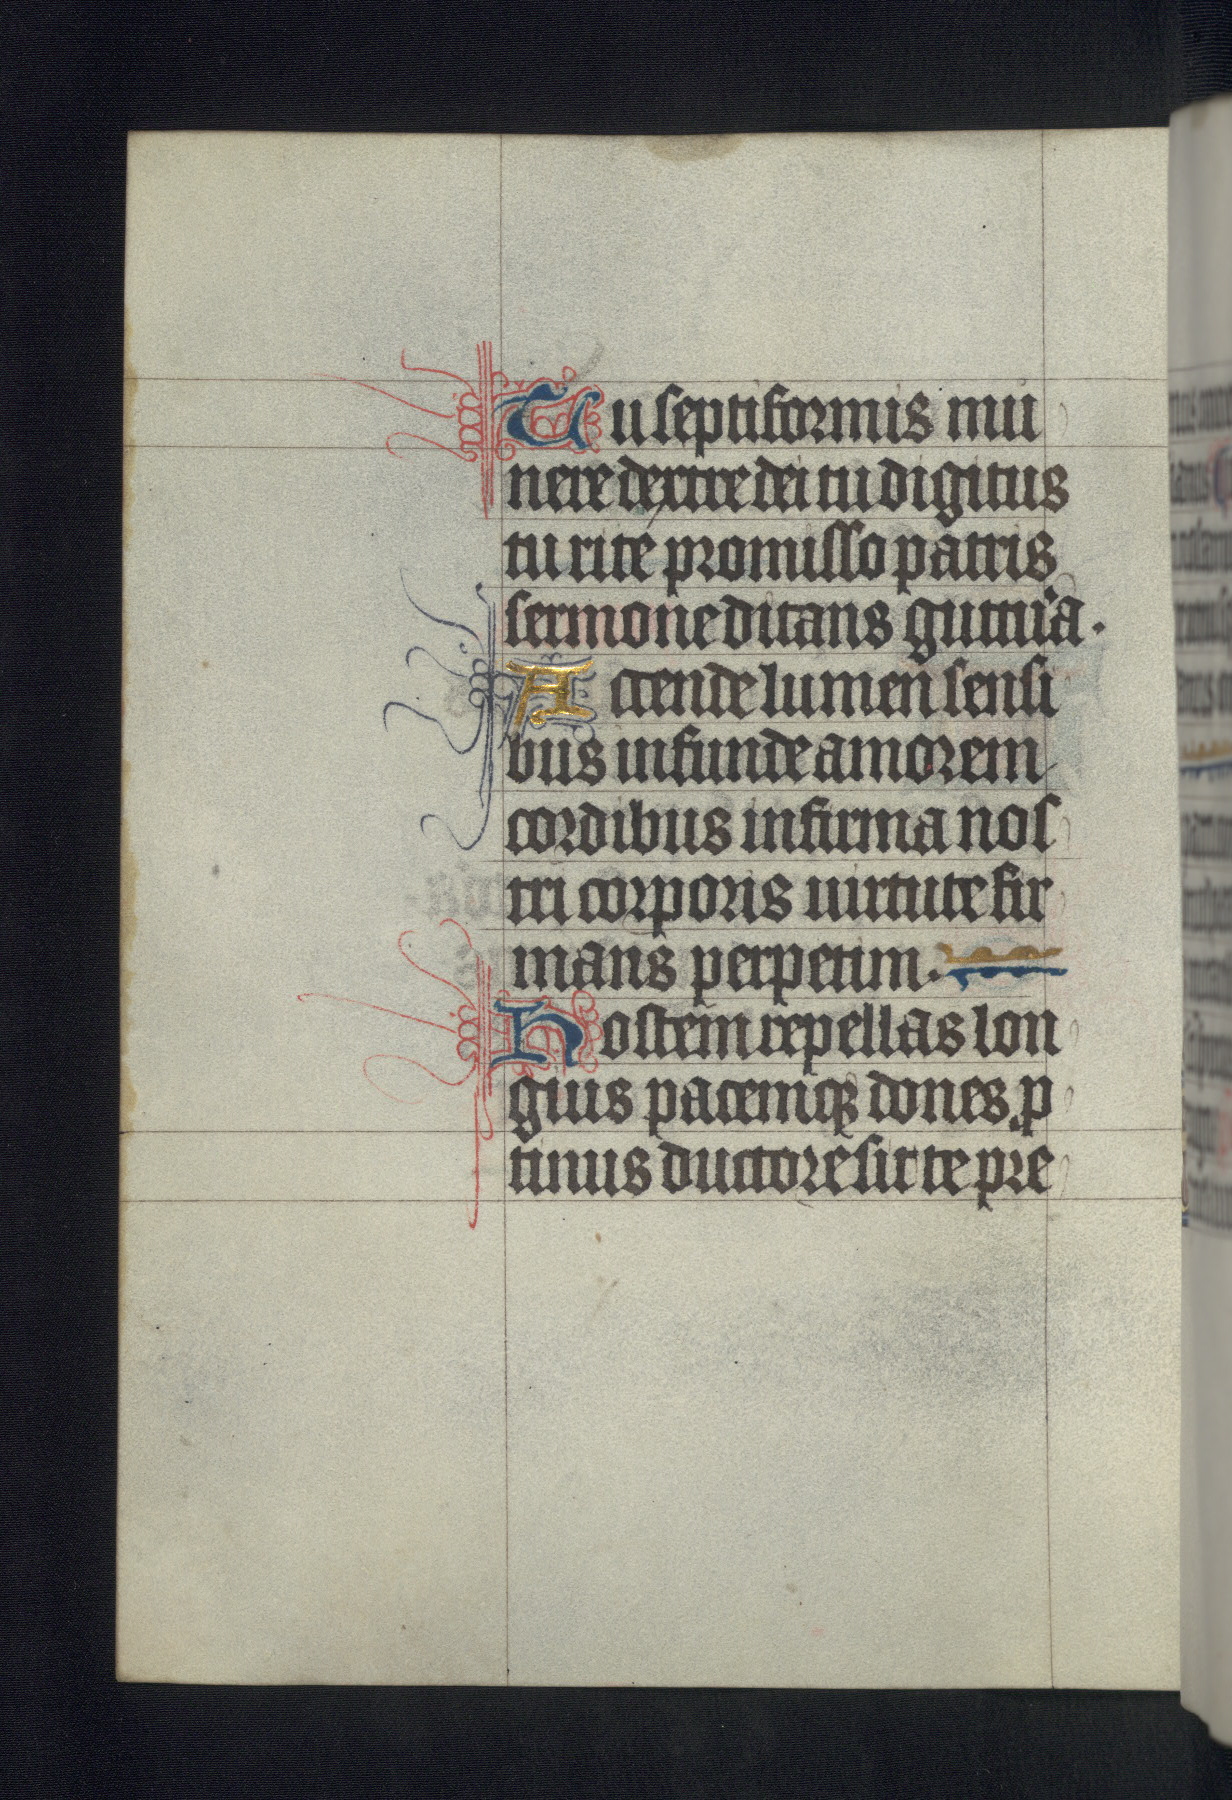 Tu septiformis mu
nere dextre dei tu digitus
tu rite promisso patris
sermone ditans guttura.
Accende lumen sensi
bus infunde amorem
cordibus infirma nos
tri corporis uirtute fir
mans perpetim.
Hostem repellas lon
gius pacemq; dones p
tinus ductore sic te pre